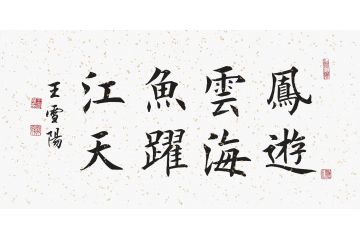 鳳遊
雲海
魚躍
江天
王雪陽